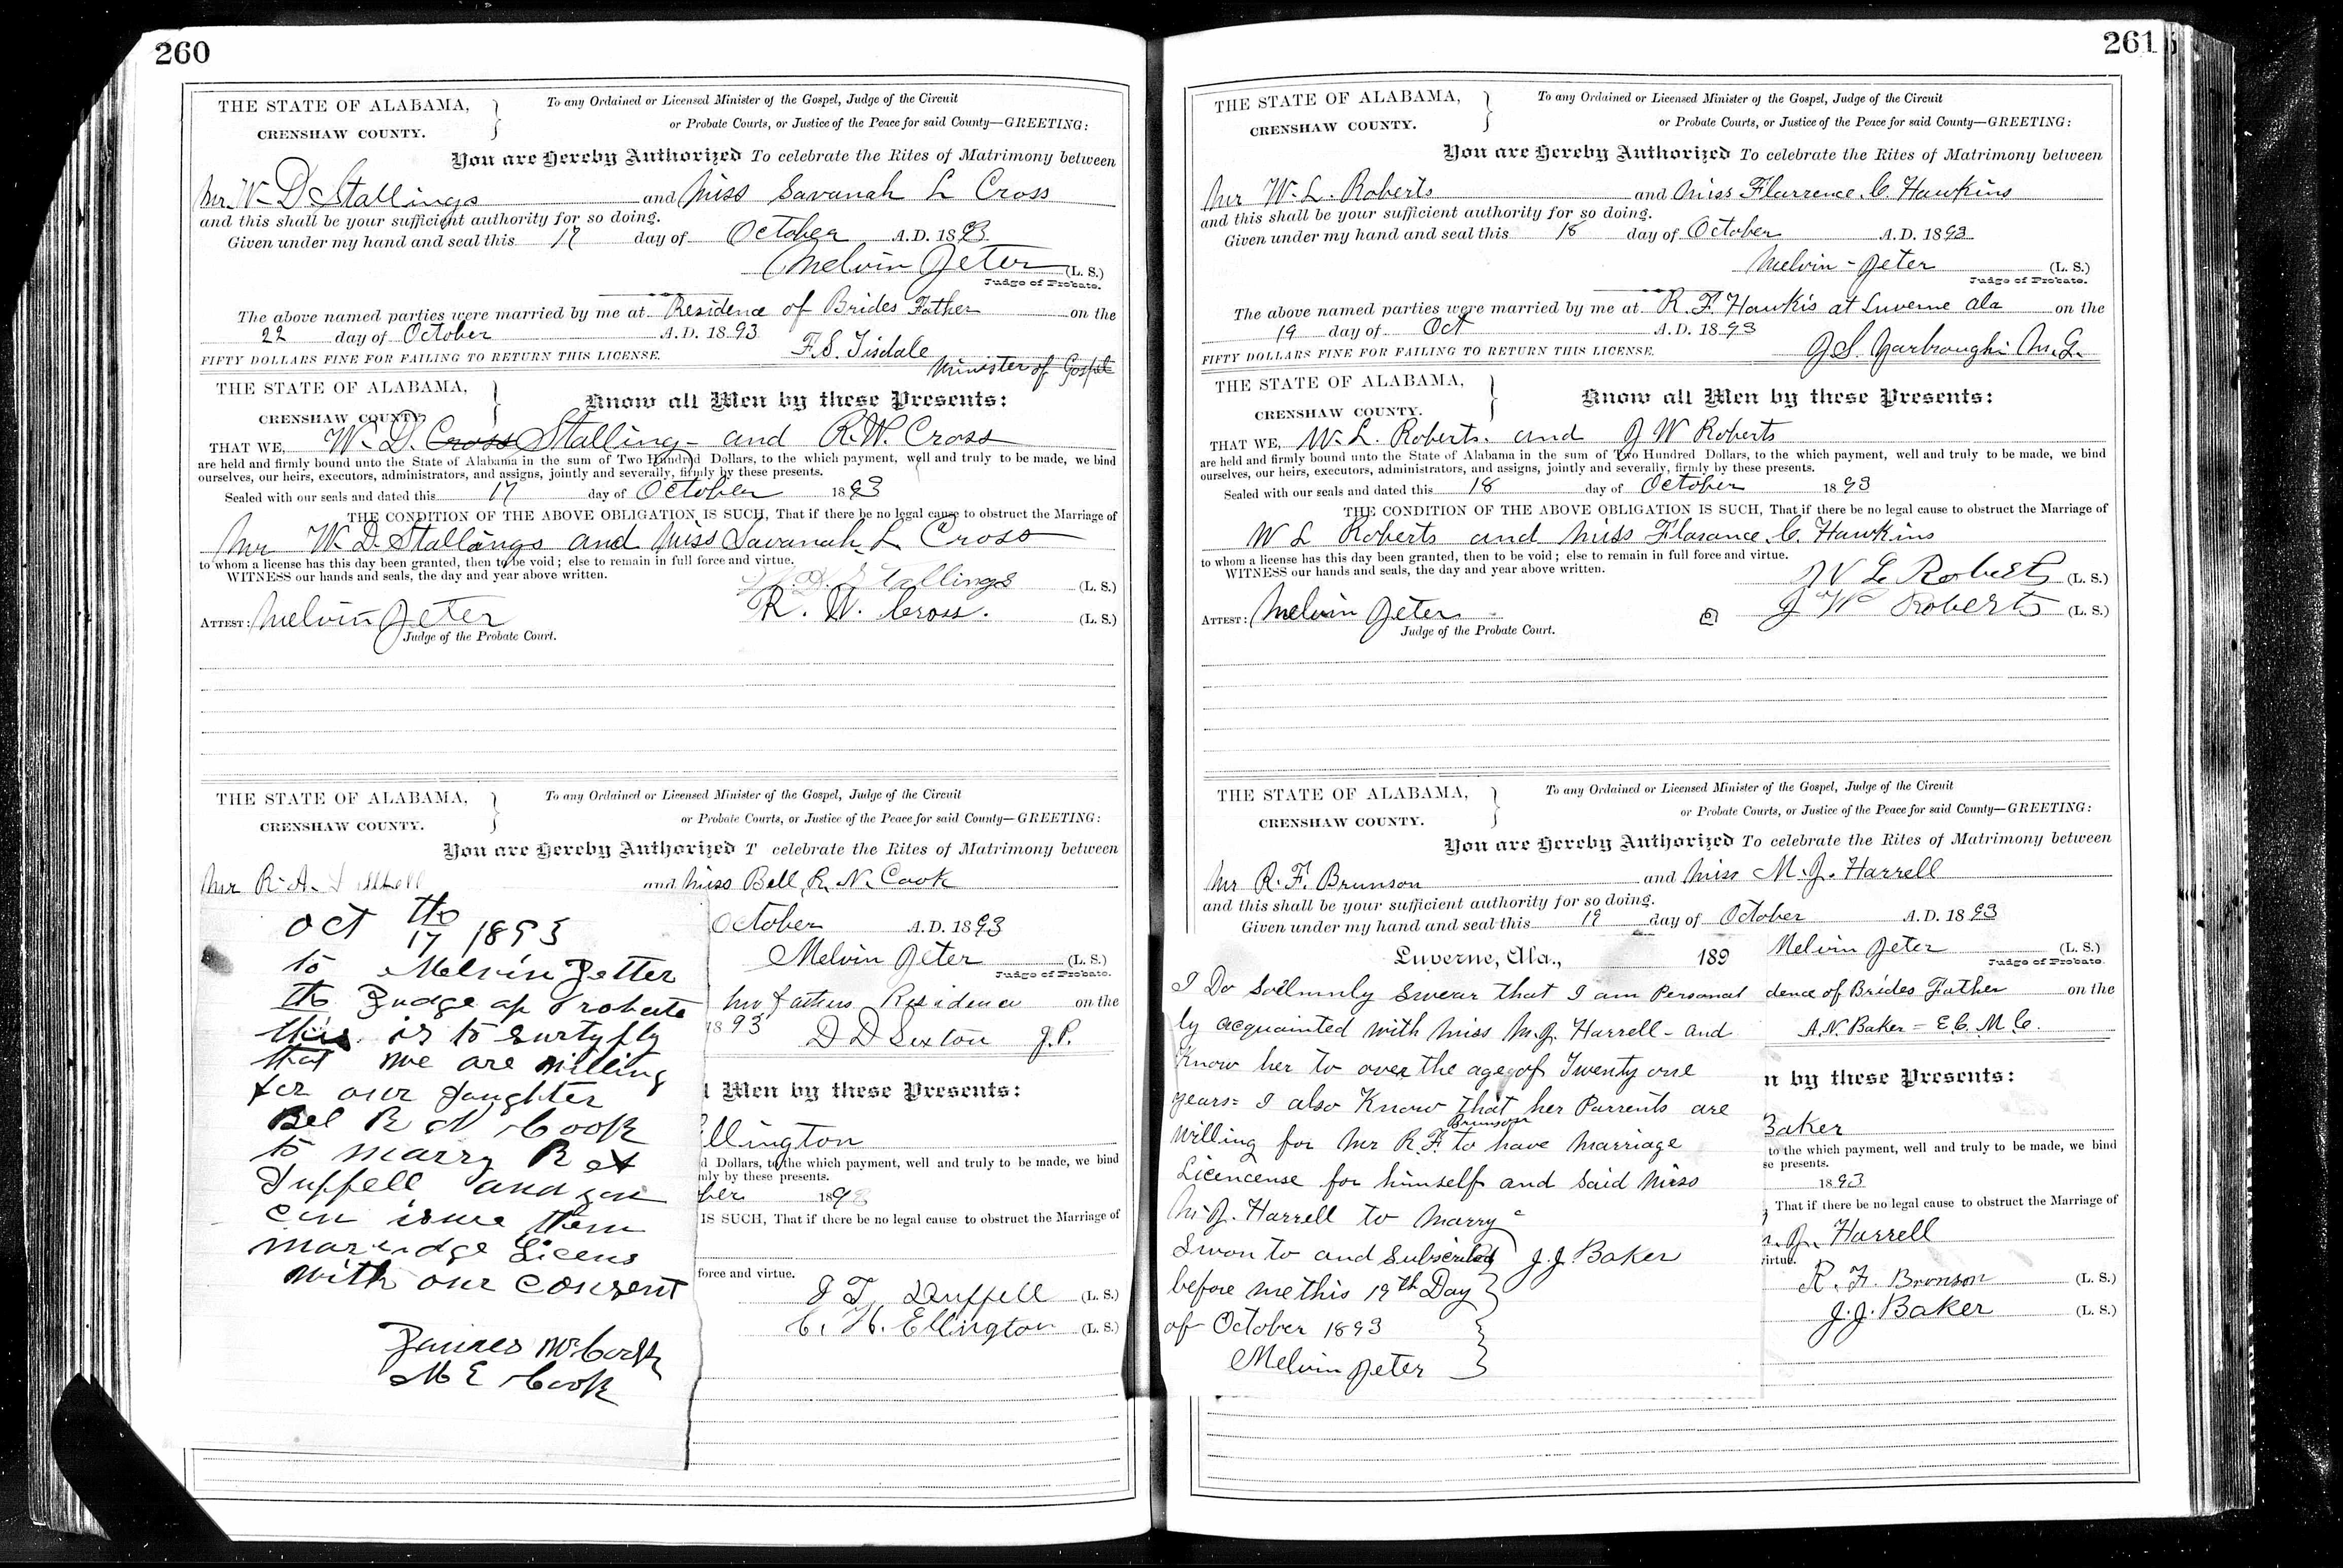 260
THE STATE OF ALABAMA,
CRENSHAW COUNTY.
To any Ordained or Licensed Minister of the Gospel, Judge of the Circuit
or Probate Courts, or Justice of the Peace for said County—GREETING:
You are Hereby Authorized To celebrate the Rites of Matrimony between
Mr. W. D Stallings and Miss Savanah L Cross
and this shall be your sufficient authority for so doing.
Given under my hand and seal this 17 day of October A.D. 1893
Melvin Jeter (L. S.)
Judge of Probate.
The above named parties were married by me at Residence of Brides Father on the
22 day of October A.D. 1893
F. S. Tisdale
FIFTY DOLLARS FINE FOR FAILING TO RETURN THIS LICENSE.
Minister of Gospel
THE STATE OF ALABAMA,
CRENSHAW COUNTY.
Know all Men by these Presents:
THAT WE, W. D. Cross Stalling- and R. W. Cross
are held and firmly bound unto the State of Alabama in the sum of Two Hundred Dollars, to the which payment, well and truly to be made, we bind
ourselves, our heirs, executors, administrators, and assigns, jointly and severally, firmly by these presents.
Sealed with our seals and dated this 17 day of October 1893
THE CONDITION OF THE ABOVE OBLIGATION IS SUCH, That if there be no legal cause to obstruct the Marriage of
Mr W. D. Stallings and Miss Savanah L Cross
to whom a license has this day been granted, then to be void; else to remain in full force and virtue.
WITNESS our hands and seals, the day and year above written.
W. D. Stallings (L. S.)
R. W. Cross. (L. S.)
ATTEST: Melvin Jeter
Judge of the Probate Court.
THE STATE OF ALABAMA,
CRENSHAW COUNTY.
To any Ordained or Licensed Minister of the Gospel, Judge of the Circuit
or Probate Courts, or Justice of the Peace for said County—GREETING:
You are Hereby Authorized T celebrate the Rites of Matrimony between
Mr R. A. and Miss Bell R. N. Cook
October A.D. 1893
Melvin Jeter (L. S.)
Judge of Probate.
his fathers Residence on the
1893
D D Sexton J. P.
l Men by these Presents:
llington
d Dollars, to the which payment, well and truly to be made, we bind
mly by these presents.
ber 1893
IS SUCH, That if there be no legal cause to obstruct the Marriage of
force and virtue.
J T. Duffell (L. S.)
C. H. Ellington (L. S.)
Oct the
17 1893
to Melvin Jetter
the Judge of Probate
this is to surtyfly
that we are willing
for our daughter
Bel R N Cook
to marry R A
Tuffell and you
can isure them
marridge Licens
with our consent
James M Cook
M E Cook
261
THE STATE OF ALABAMA,
CRENSHAW COUNTY.
To any Ordained or Licensed Minister of the Gospel, Judge of the Circuit
or Probate Courts, or Justice of the Peace for said County—GREETING:
You are Hereby Authorized To celebrate the Rites of Matrimony between
Mr W. L. Roberts and Miss Flarrence. C. Hawkins
and this shall be your sufficient authority for so doing.
Given under my hand and seal this 18 day of October A.D. 1893
Melvin - Jeter (L. S.)
Judge of Probate.
The above named parties were married by me at R. F. Hawkis at Luverne Ala on the
19 day of Oct A.D. 1893
FIFTY DOLLARS FINE FOR FAILING TO RETURN THIS LICENSE.
J. S. Yarbrough M. G.
THE STATE OF ALABAMA,
CRENSHAW COUNTY.
Know all Men by these Presents:
THAT WE, W. L. Roberts. and J W Roberts
are held and firmly bound unto the State of Alabama in the sum of Two Hundred Dollars, to the which payment, well and truly to be made, we bind
ourselves, our heirs, executors, administrators, and assigns, jointly and severally, firmly by these presents.
Sealed with our seals and dated this 18 day of October 1893
THE CONDITION OF THE ABOVE OBLIGATION IS SUCH, That if there be no legal cause to obstruct the Marriage of
W L Roberts and Miss Flarance. C. Hawkins
to whom a license has this day been granted, then to be void; else to remain in full force and virtue.
WITNESS our hands and seals, the day and year above written.
W L Roberts (L. S.)
J W Roberts (L. S.)
ATTEST: Melvin Jeter
Judge of the Probate Court.
THE STATE OF ALABAMA,
CRENSHAW COUNTY.
To any Ordained or Licensed Minister of the Gospel, Judge of the Circuit
or Probate Courts, or Justice of the Peace for said County—GREETING:
You are Hereby Authorized To celebrate the Rites of Matrimony between
Mr R. F. Brunson and Miss M. J. Harrell
and this shall be your sufficient authority for so doing.
Given under my hand and seal this 19 day of October A.D. 1893
Melvin Jeter (L. S.)
Judge of Probate.
dence of Brides Father on the
A. N. Baker = E. C. M. C.
n by these Presents:
Baker
to the which payment, well and truly to be made, we bind
se presents.
1893
That if there be no legal cause to obstruct the Marriage of
J. Harrell
virtue.
R. F. Brunson (L. S.)
J. J. Baker (L. S.)
Luverne, Ala., 189
I Do Sollmnly Swear that I am Personal
ly acquainted with Miss M. J. Harrell - and
Know her to over the age of Twenty one
years = I also Know that her Parrents are
Willing for Mr R. F. Brunson to have Marriage
Licencense for himself and Said Miss
M. J. Harrell to Marry
Swon to and Subscribed J. J. Baker
before me this 19th Day
of October 1893
Melvin Jeter